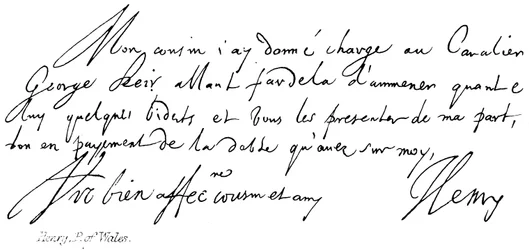 Mon cousin i ay donné charge au Cavalier
George Keir allant par dela d'ammener quant e
luy quelques bidets et vous les presenter de ma part,
bon en payement de la debte qu'avez sur moy,
Vre bien affec.né cousin et amy Henry
Henry, P. of Wales.